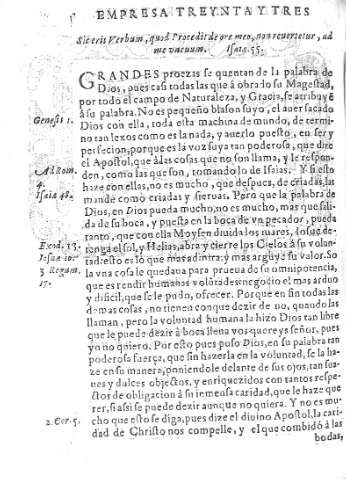 EMPRESA TREYNTA Y TRES
Sic erit Verbum, quod Procedit de ore meo, non reuertetur, ad
me vacuum. Isaiæ. 55.
GRANDES proezas se quentan de la palabra de
Dios, pues casi todas las que à obrado su Magestad,
por todo el campo de Naturaleza, y Gracia, se atribuyẽ
à su palabra. No es pequeño blason suyo, el auer sacado
Genesis 1.
Dios con ella, toda esta machina de mundo, de termi-
no tan lexos como es la nada, y auerlo puesto, en ser y
perfecion, porque es la voz suya tan poderosa, que dize
el Apostol, que à las cosas que no son llama, y le respon-
Ad Rom.
4.
den, como las que son, tomandolo de Isaias. Y si esto
Isaiæ 48.
haze con ellas, no es mucho, que despues, de criadas, las
mande como criadas y sieruas. Pero que la palabra de
Dios, en Dios pueda mucho, no es mucho, mas que sali-
da de su boca, y puesta en la boca de vn pecador, pueda
tanto, que con ella Moysen diuida los mares, Iosue de-
Exod. 13.
tenga el sol, y Helias, abra y cierre los Cielos à su volun-
Iosue 10.
tad: esto es lo que mas admira: y mas arguye su valor. So
3 Regum.
la vna cosa le quedaua para prueua de su omnipotencia,
17.
que es rendir humanas volũtades negocio el mas arduo
y dificil, que se le pudo, ofrecer. Porque en sin todas las
demas cosas, no tienen conque dezir de no, quando las
llaman, pero la voluntad humana la hizo Dios tan libre
que le puede dezir à boca llena vos quereys señor, pues
yo no quiero. Por esto pues puso Dios, en su palabra tan
poderosa fuerça, que sin hazerla en la voluntad, se la ha-
ze en su manera, poniendole delante de sus ojos, tan sua-
ues y dulces objectos, y enriquezidos con tantos respe-
ctos de obligacion à su inmensa caridad, que le haze que
rer, si asi se puede dezir aunque no quiera. Y no es mu-
cho que esto se diga, pues dize el diuino Apostol, la cari-
2. Cor. 5.
dad de Christo nos compelle, y el que combidó à las
bodas,